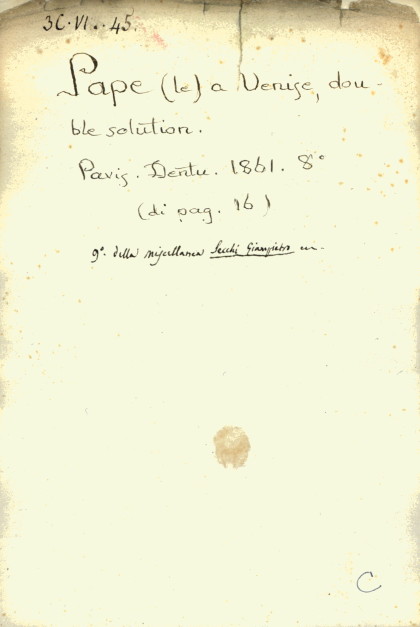 3C·VI..45.
Pape (le) a Venise, dou-
ble solution.
Paris. Dentu. 1861. 8°
(di pag. 16)
9°. della miscellanea Secchi Giampietro
C